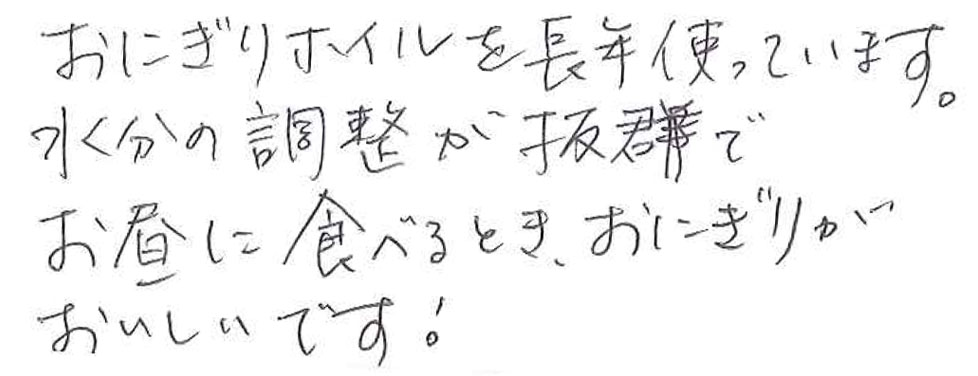 おにぎりホイルを長年使っています。
水分の調整が抜群で
お昼に食べるとき、おにぎりが
おいしいです!